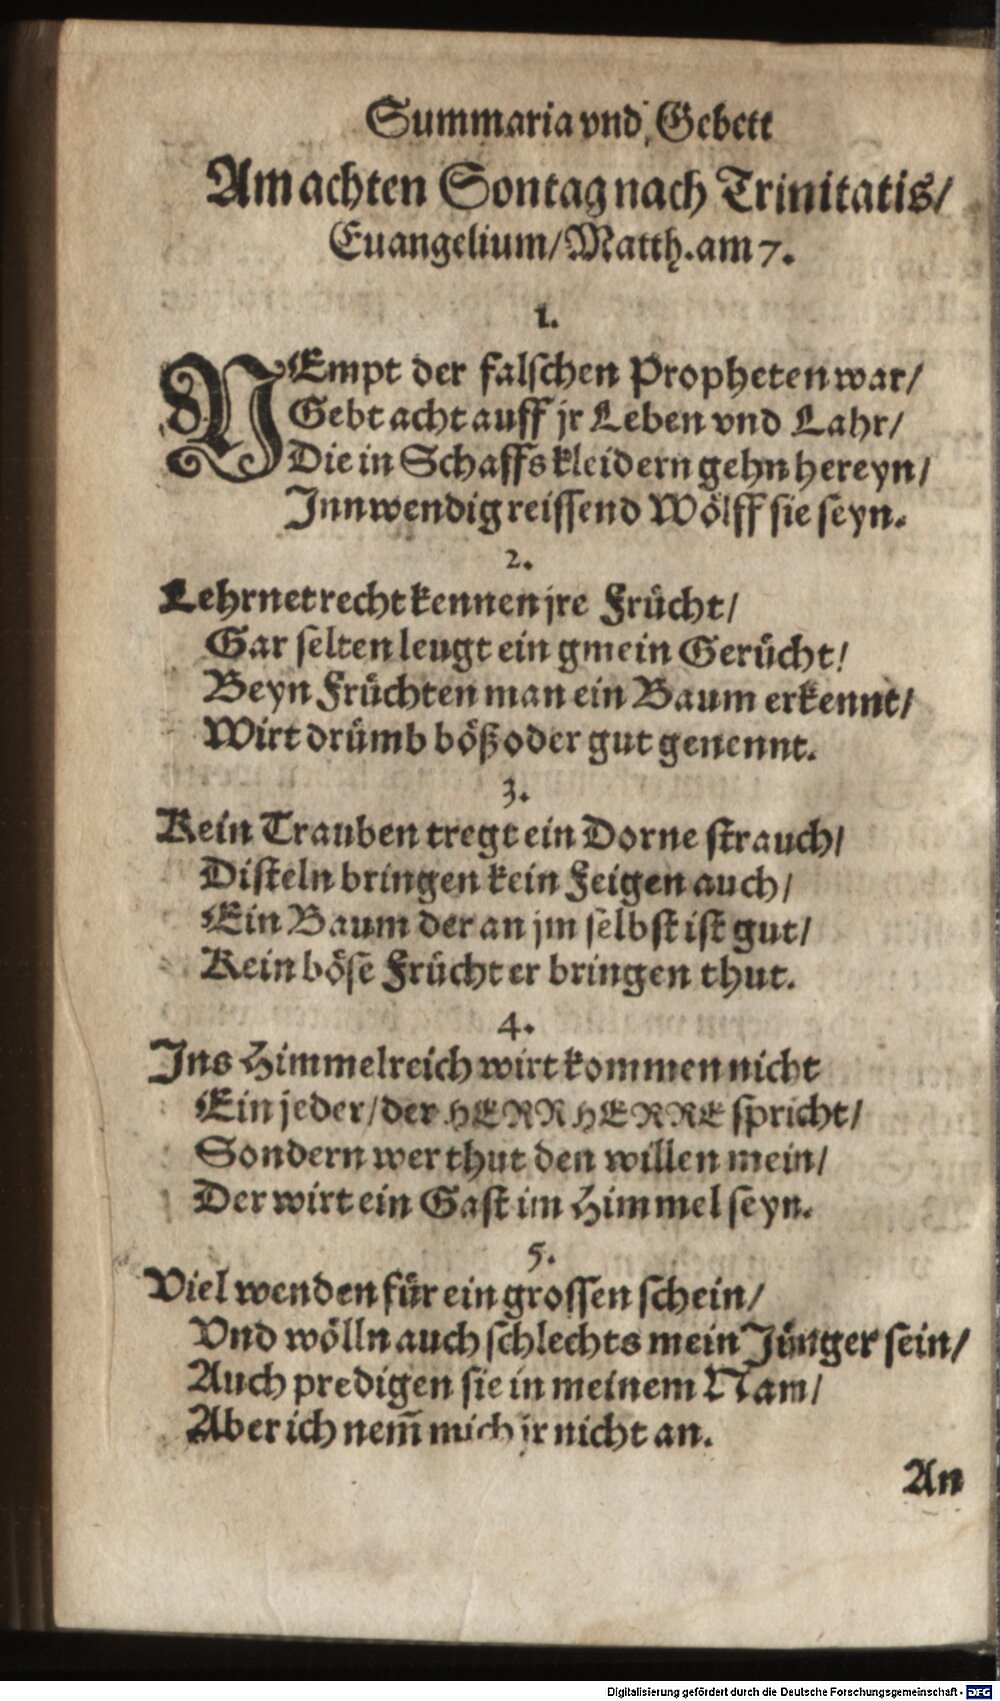 Summaria vnd Gebett
Am achten Sontag nach Trinitatis/
Euangelium/Matth. am 7.
1.
NEmpt der falschen Propheten war/
Gebt acht auff jr Leben vnd Lahr/
Die in Schaffskleidern gehn hereyn/
Innwendig reissend Wölff sie seyn.
2.
Lehrnet recht kennen jre Frücht/
Gar selten leugt ein gmein Gerücht/
Beyn Früchten man ein Baum erkennt/
Wirt drümb böß oder gut genennt.
3.
Kein Trauben tregt ein Dorne strauch/
Disteln bringen kein Feigen auch/
Ein Baum der an jm selbst ist gut/
Kein böse Frücht er bringen thut.
4.
Ins Himmelreich wirt kommen nicht
Ein jeder/der HERR HERRE spricht/
Sondern wer thut den willen mein/
Der wirt ein Gast im Himmel seyn.
5.
Viel wenden für ein grossen schein/
Vnd wölln auch schlechts mein Jünger sein/
Auch predigen sie in meinem Nam/
Aber ich nem̃ mich jr nicht an.
An
Digitalisierung gefördert durch die Deutsche Forschungsgemeinschaft - DFG